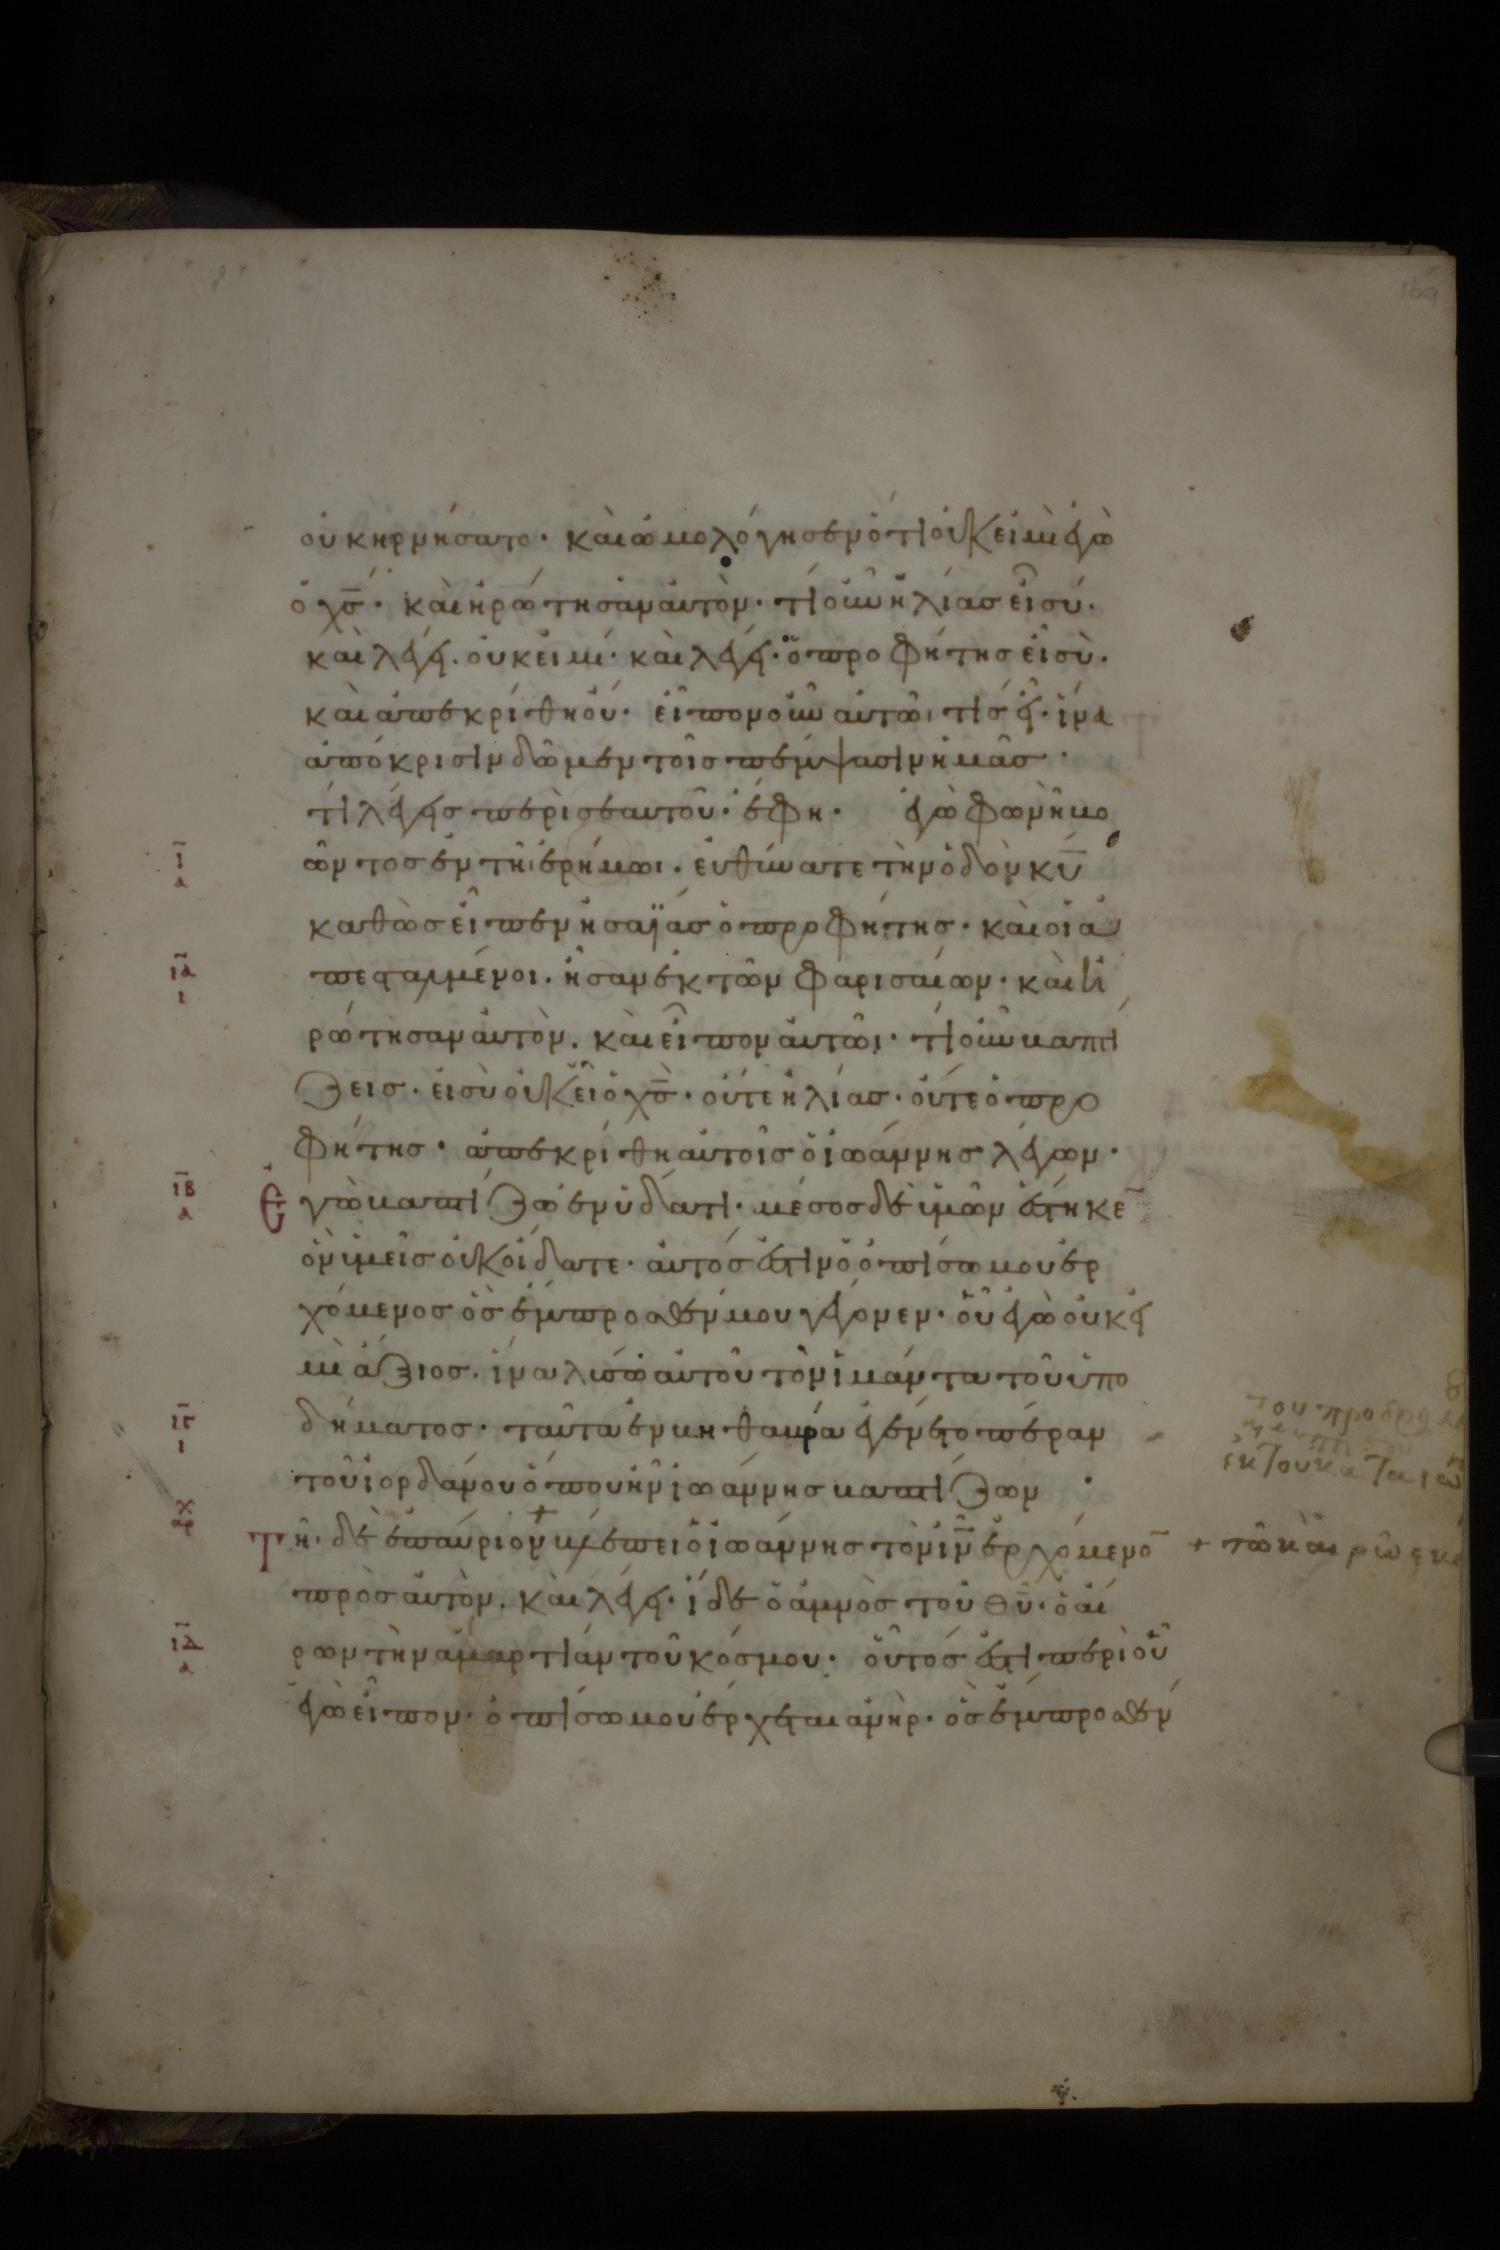 οὐκ ἠρνήσατο· καὶ ὡμολόγησεν ὅτι οὐκ εἰμὶ ἐγὼ
ὁ χ̅ς̅· καὶ ἠρώτησαν αὐτὸν· τί οὖν ἠλίας εἶ σύ·
καὶ λέγει· οὐκ εἰμί· καὶ λέγει· ὁ προφήτης εἶ σὺ·
καὶ ἀπεκρίθη οὔ· εἶπον οὖν αὐτῶι τίς εἶ· ἵνα
ἀπόκρισιν δῶμεν τοῖς πέμψασιν ἡμᾶς·
τί λέγεις περὶ σεαυτοῦ· ἔφη· ἐγὼ φωνὴ βο
ῶντος ἐν τῆι ἐρήμωι· εὐθύνατε τὴν ὁδὸν κ̅υ̅
ι̅
α
καθὼς εἶπεν ἠσαΐας ὁ προφήτης· καὶ οἱ ἀ
πεσταλμένοι· ἦσαν ἐκ τῶν φαρισαίων· καὶ ἠ
ι̅α̅
ι
ρώτησαν αὐτὸν· καὶ εἶπον αὐτῶι· τί οὖν βαπτί
ζεις· εἰ σὺ οὐκ εἶ ὁ χ̅ς̅· οὔτε ἠλίας· οὔτε ὁ προ
φήτης· ἀπεκρίθη αὐτοῖς ὁ ἰωάννης λέγων·
ι̅β̅
α
Ἐγὼ βαπτίζω ἐν ὕδατι· μέσος δὲ ὑμῶν ἕστηκε̅
ὃν ὑμεῖς οὐκ οἴδατε· αὐτός ἐστιν ὁ ὀπίσω μου ἐρ
χόμενος ὃς ἔμπροσθέν μου γέγονεν· οὗ ἐγὼ οὐκ εἰ
μὶ ἄξιος· ἵνα λύσω αὐτοῦ τὸν ἱμάντα τοῦ ὑπο
δήματος· ταῦτα ἐν βηθαβαρᾶ ἐγένετο πέραν
ι̅γ̅
ι
τοῦ ἰορδάνου ὅπου ἦν ἰωάννης βαπτίζων·
Τῆι δὲ ἐπαύριον + βλέπει ὁ ἰωάννης τὸν ι̅ν̅ ἐρχόμενο̅
πρὸς αὐτὸν· καὶ λέγει· ἴδε ὁ ἀμνὸς τοῦ θ̅υ̅· ὁ αἴ
ρων τὴν ἁμαρτίαν τοῦ κόσμου· οὗτός ἐστι περὶ οὗ
ι̅δ̅
α
ἐγὼ εἶπον· ὀπίσω μου ἔρχεται ἀνὴρ· ὃς ἔμπροσθέν
ἐκ τοῦ κατὰ ιω
+ τῶ καιρῶ ἐκεί
169